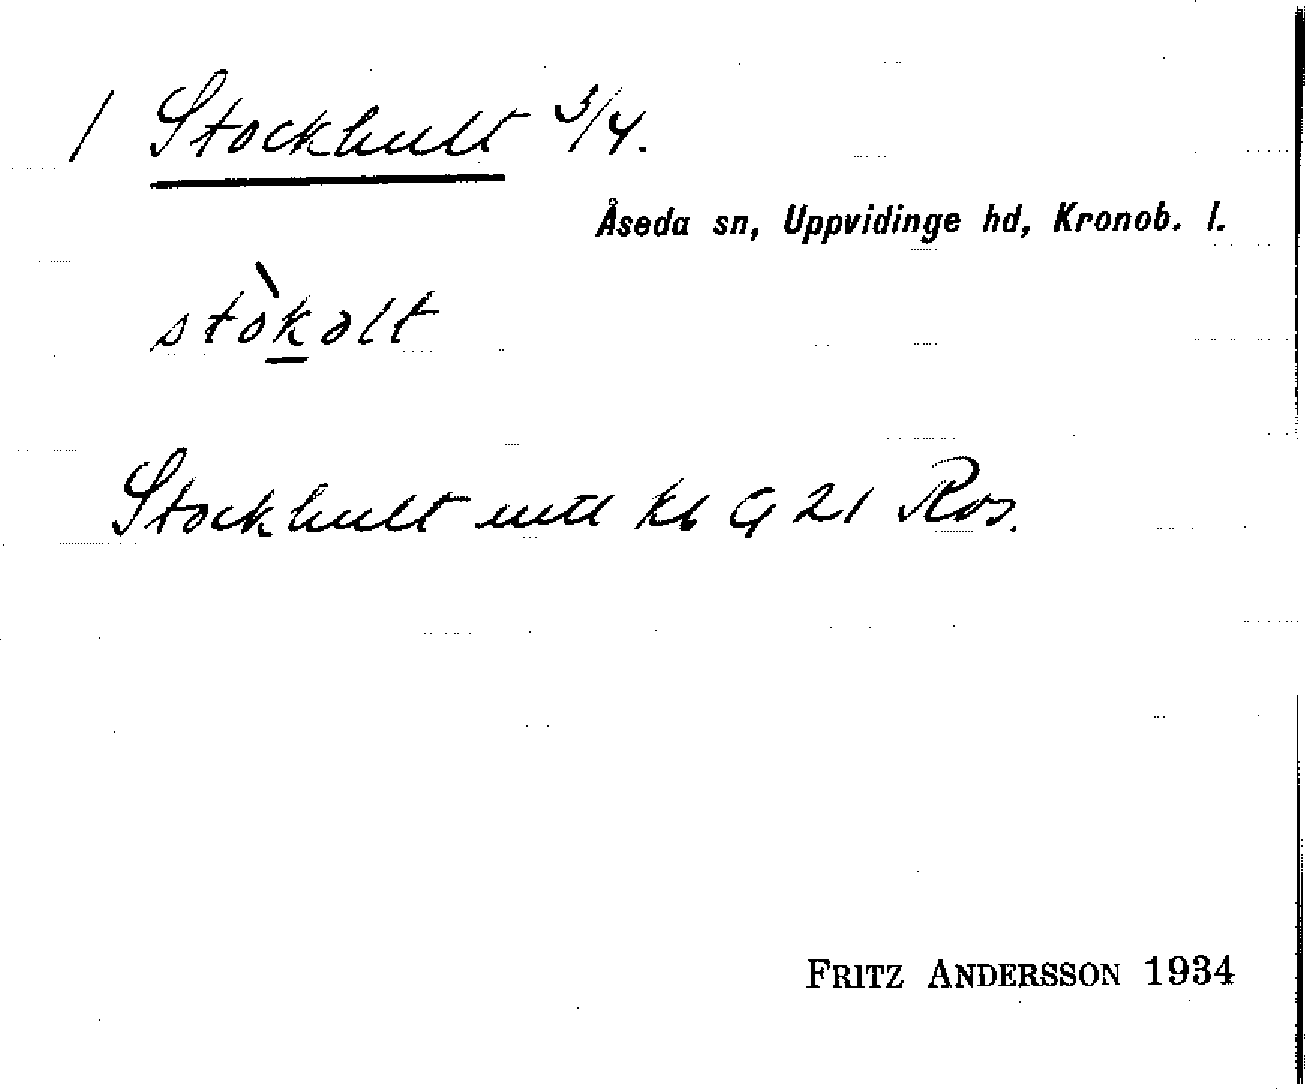 / Stockhult 3/4.
Åseda sn, Uppvidinge hd, Kronob. l.
stòkəlt
Stockhult mtl kb G 21 Ros.
FRITZ ANDERSSON 1934